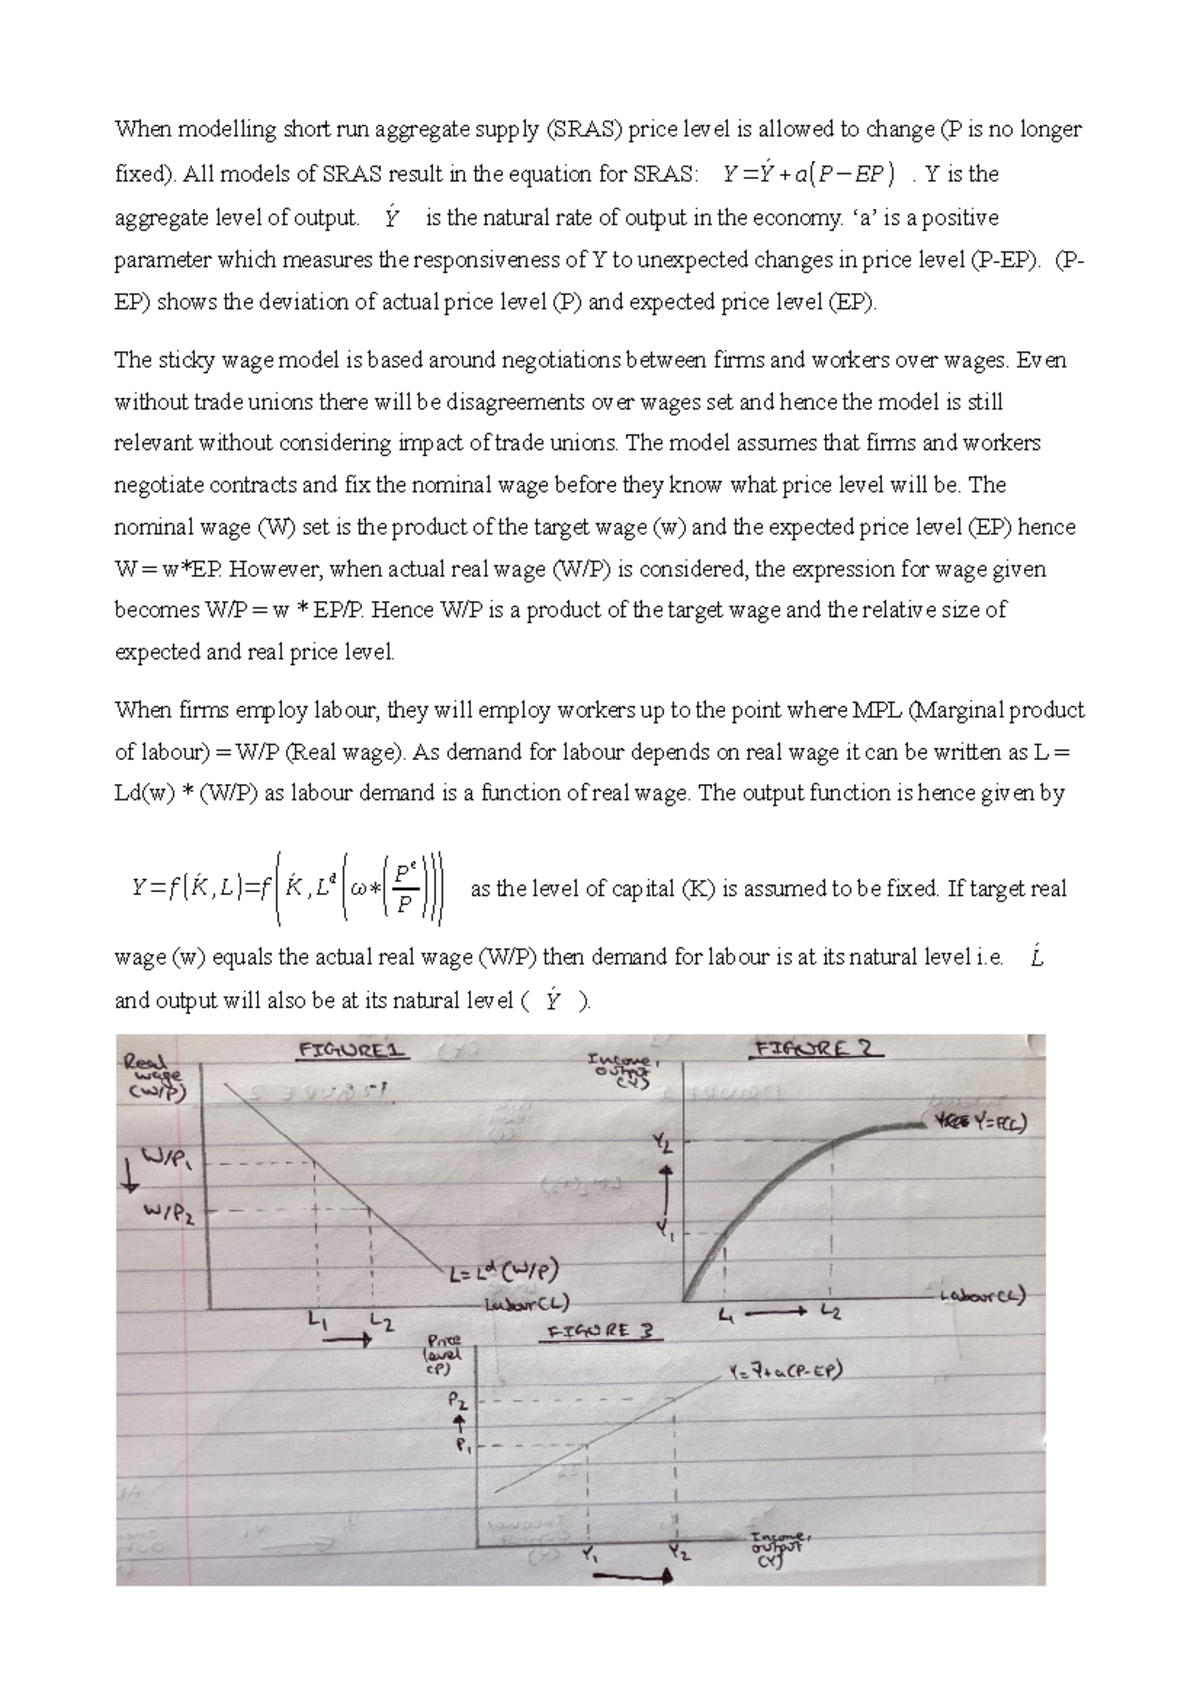 When modelling short run aggregate supply (SRAS) price level is allowed to change (P is no longer
fixed). All models of SRAS result in the equation for SRAS: Y=Ý+a(P−EP) . Y is the
aggregate level of output. Ý is the natural rate of output in the economy. ‘a’ is a positive
parameter which measures the responsiveness of Y to unexpected changes in price level (P-EP). (P-
EP) shows the deviation of actual price level (P) and expected price level (EP).
The sticky wage model is based around negotiations between firms and workers over wages. Even
without trade unions there will be disagreements over wages set and hence the model is still
relevant without considering impact of trade unions. The model assumes that firms and workers
negotiate contracts and fix the nominal wage before they know what price level will be. The
nominal wage (W) set is the product of the target wage (w) and the expected price level (EP) hence
W = w*EP. However, when actual real wage (W/P) is considered, the expression for wage given
becomes W/P = w * EP/P. Hence W/P is a product of the target wage and the relative size of
expected and real price level.
When firms employ labour, they will employ workers up to the point where MPL (Marginal product
of labour) = W/P (Real wage). As demand for labour depends on real wage it can be written as L =
Ld(w) * (W/P) as labour demand is a function of real wage. The output function is hence given by
Y=f(Ḱ,L)=f(Ḱ,L^d(ω*(P^e/P))) as the level of capital (K) is assumed to be fixed. If target real
wage (w) equals the actual real wage (W/P) then demand for labour is at its natural level i.e. Ĺ
and output will also be at its natural level ( Ý ).
FIGURE 1
Real
wage
(W/P)
W/P₁
W/P₂
L=L^d(W/P)
Labour(L)
L₁ L₂
FIGURE 2
Income,
output
(Y)
Y₂
Y₁
Y=F(L)
Labour(L)
L₁ L₂
FIGURE 3
Price
level
(P)
P₂
P₁
Y=Ȳ+a(P-EP)
Y₁ Y₂
Income,
output
(Y)